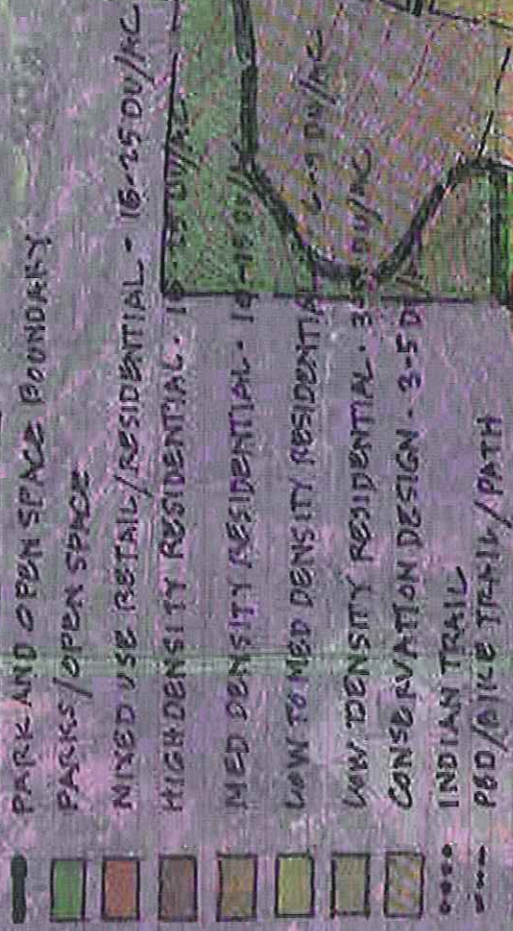 PARK AND OPEN SPACE BOUNDARY
PARKS/OPEN SPACE
MIXED USE RETAIL/RESIDENTIAL - 16-25 DU/AC
HIGH DENSITY RESIDENTIAL - 16-25 DU/AC
MED DENSITY RESIDENTIAL - 10-15 DU/
LOW TO MED DENSITY RESIDENTIAL 6-9 DU/AC
LOW DENSITY RESIDENTIAL - 3-5 DU/AC
CONSERVATION DESIGN - 3-5 D
INDIAN TRAIL
PED/BIKE TRAIL/PATH